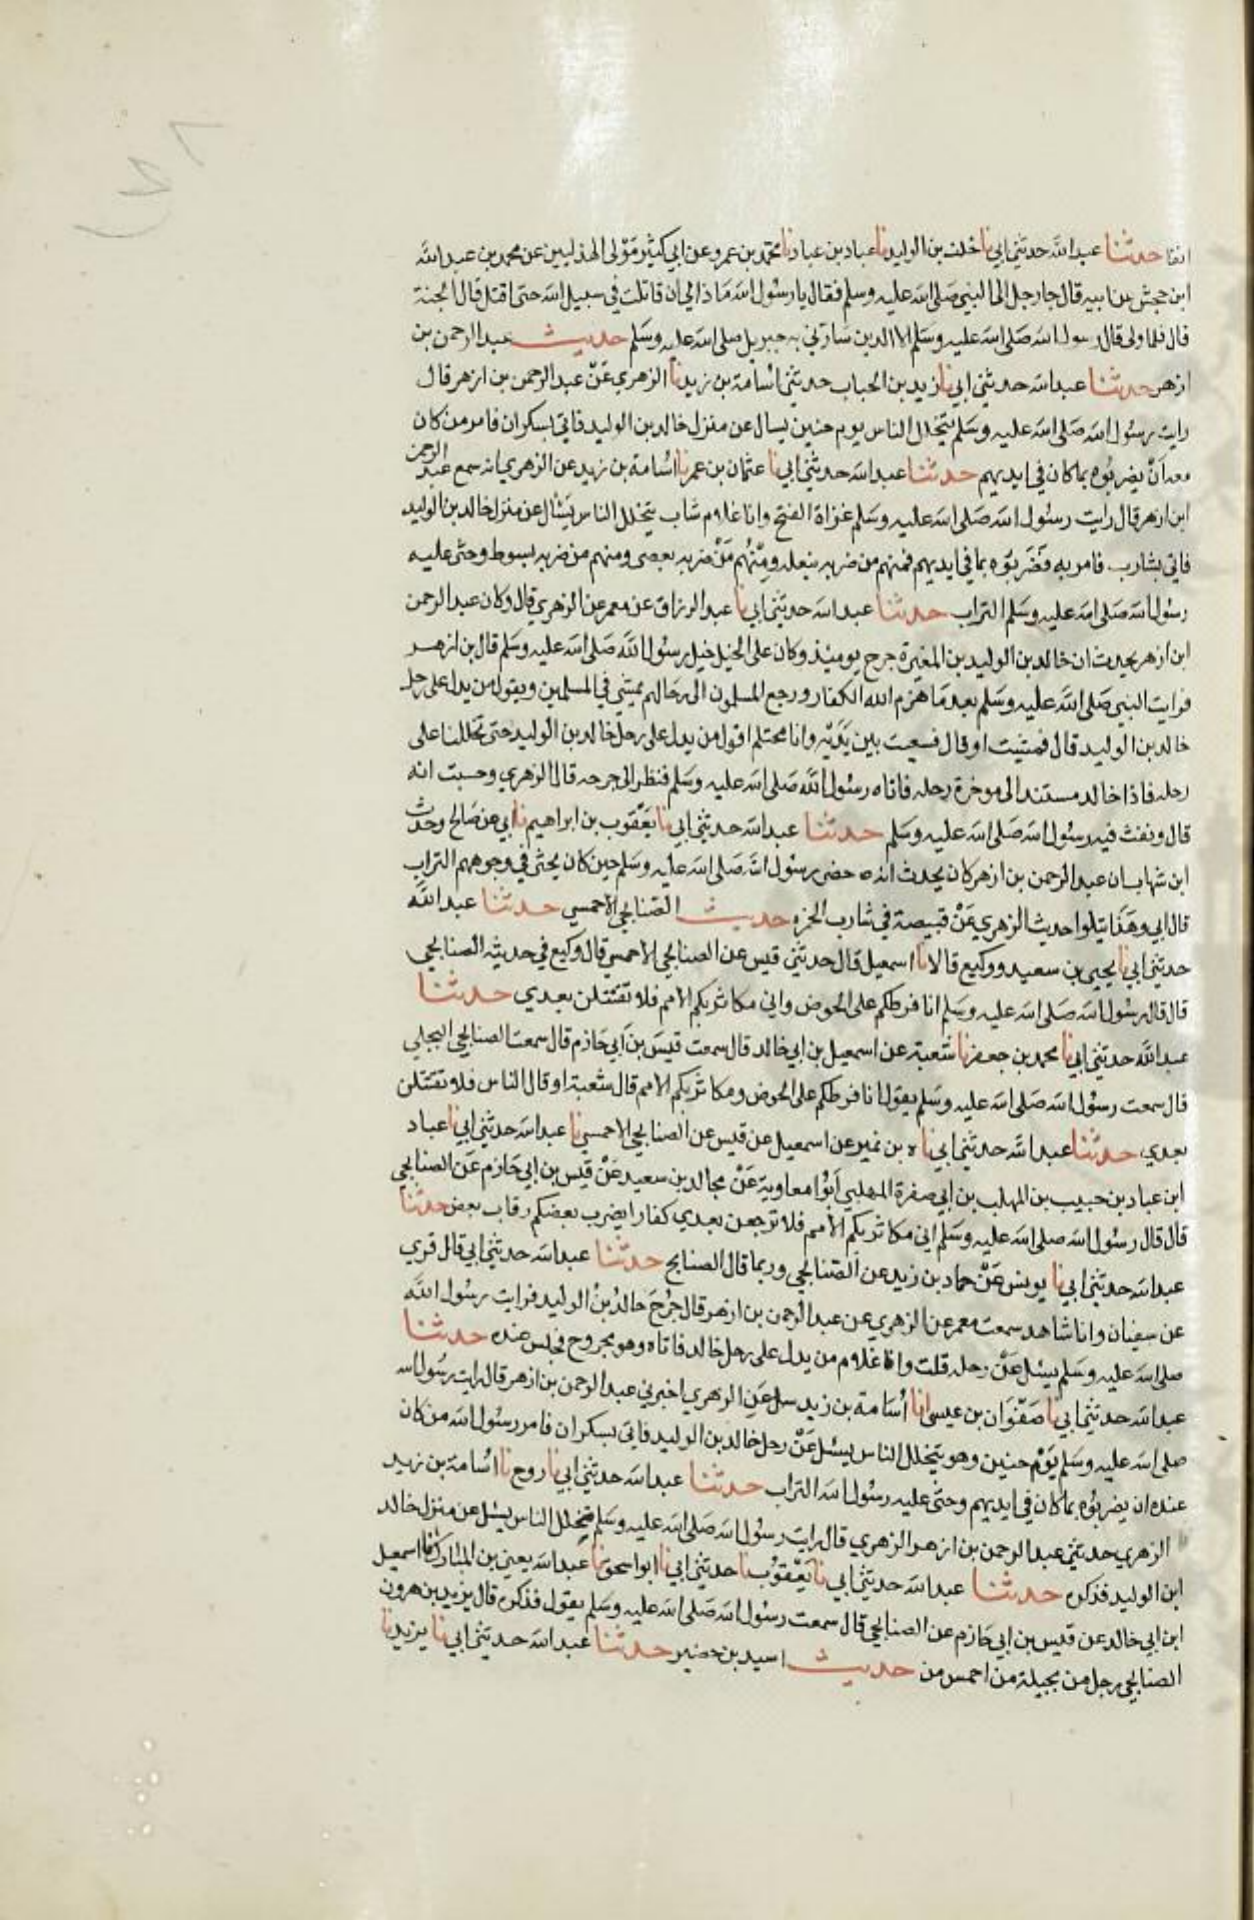 انفا حدثنا عبد الله حدثني ابي نا خلف بن الوليد نا عباد بن عباد نا محمد بن عمرو عن ابي كثير مولى الهذليين عن محمد بن عبد الله
ابن جحش عن ابيه قال جا رجل الى النبي صلى الله عليه وسلم فقال يا رسول الله ماذا لي ان قاتلت في سبيل الله حتى اقتل قال الجنة
قال فلما ولى قال رسول الله صلى الله عليه وسلم الا الدين سارني به جبريل صلى الله عليه وسلم حديث عبد الرحمن بن
ازهر حدثنا عبد الله حدثني ابي نا زيد بن الحباب حدثني اسامة بن زيد نا الزهري عن عبد الرحمن بن ازهر قال
رايت رسول الله صلى الله عليه وسلم يتخلل الناس يوم حنين يسال عن منزل خالد بن الوليد فاتي بسكران فامر من كان
معه ان يضربوه بما كان في ايديهم حدثنا عبد الله حدثني ابي نا عثمان بن عمر نا اسامة بن زيد عن الزهري انه سمع عبد الرحمن
ابن ازهر قال رايت رسول الله صلى الله عليه وسلم غزاة الفتح وانا غلام شاب يتخلل الناس يسال عن منزل خالد بن الوليد
فاتي بشارب فامر به فضربوه بما في ايديهم فمنهم من ضربه بنعله ومنهم من ضربه بعصى ومنهم من ضربه بسوط وحثى عليه
رسول الله صلى الله عليه وسلم التراب حدثنا عبد الله حدثني ابي نا عبد الرزاق عن معمر عن الزهري قال وكان عبد الرحمن
ابن ازهر يحدث ان خالد بن الوليد بن المغيرة جرح يوميذ وكان على الخيل خيل رسول الله صلى الله عليه وسلم قال بن ازهر
فرايت النبي صلى الله عليه وسلم بعد ما هزم الله الكفار ورجع المسلمون الى رحالهم يمشي في المسلمين ويقول من يدل على رحل
خالد بن الوليد قال فمشيت او قال فسعيت بين يديه وانا محتلم اقول من يدل على رحل خالد بن الوليد حتى تخللنا على
رحله فاذا خالد مستند الى موخرة رحله فاتاه رسول الله صلى الله عليه وسلم فنظر الى جرحه قال الزهري وحسبت انه
قال ونفث فيه رسول الله صلى الله عليه وسلم حدثنا عبد الله حدثني ابي نا يعقوب بن ابراهيم نا ابي عن صالح وحدث
ابن شهاب ان عبد الرحمن بن ازهر كان يحدث انه حضر رسول الله صلى الله عليه وسلم حين كان يحثي في وجوههم التراب
قال ابي وهذا يتلوا حديث الزهري عن قبيصة في شارب الخمر حديث الصنابحي الاحمسي حدثنا عبد الله
حدثني ابي نا يحيى بن سعيد ووكيع قالا نا اسمعيل قال حدثني قيس عن الصنابحي الاحمسي قال وكيع في حديثه الصنابحي
قال قال رسول الله صلى الله عليه وسلم انا فرطكم على الحوض واني مكاثر بكم الامم فلا تقتتلن بعدي حدثنا
عبد الله حدثني ابي نا محمد بن جعفر نا شعبة عن اسمعيل بن ابي خالد قال سمعت قيس بن ابي حازم قال سمعت الصنابحي البجلي
قال سمعت رسول الله صلى الله عليه وسلم يقول انا فرطكم على الحوض ومكاثر بكم الامم قال شعبة او قال الناس فلا تقتتلن
بعدي حدثنا عبد الله حدثني ابي نا ه بن نمير عن اسمعيل عن قيس عن الصنابحي الاحمسي نا عبد الله حدثني ابي نا عباد
ابن عباد بن حبيب بن المهلب بن ابي صفرة المهلبي ابوا معاوية عن مجالد بن سعيد عن قيس بن ابي حازم عن الصنابحي
قال قال رسول الله صلى الله عليه وسلم اني مكاثر بكم الامم فلا ترجعن بعدي كفارا يضرب بعضكم رقاب بعض حدثنا
عبد الله حدثني ابي نا يونس عن حماد بن زيد عن الصنابحي وربما قال الصنابح حدثنا عبد الله حدثني ابي قال قري
عن سفيان وانا شاهد سمعت معمر عن الزهري عن عبد الرحمن بن ازهر قال جرح خالد بن الوليد فرايت رسول الله
صلى الله عليه وسلم يسئل عن رحله قلت وانا غلام من يدل على رحل خالد فاتاه وهو مجروح فجلس عنده حدثنا
عبد الله حدثني ابي نا صفوان بن عيسى انا اسامة بن زيد عن الزهري اخبرني عبد الرحمن بن ازهر قال رايت رسول الله
صلى الله عليه وسلم يوم حنين وهو يتخلل الناس يسئل عن رحل خالد بن الوليد فاتي بسكران فامر رسول الله من كان
عنده ان يضربوه بما كان في ايديهم وحثى عليه رسول الله التراب حدثنا عبد الله حدثني ابي نا روح نا اسامة بن زيد
الزهري حدثني عبد الرحمن بن ازهر الزهري قال رايت رسول الله صلى الله عليه وسلم يتخلل الناس يسئل عن منزل خالد
ابن الوليد فذكره حدثنا عبد الله حدثني ابي نا يعقوب نا حدثني ابي نا ابو اسحق نا عبد الله يعني بن المبارك نا اسمعيل
ابن ابي خالد عن قيس بن ابي حازم عن الصنابحي قال سمعت رسول الله صلى الله عليه وسلم يقول فذكره قال يزيد بن هرون
الصنابحي رجل من بجيلة من احمس من حديث اسيد بن حضير حدثنا عبد الله حدثني ابي نا يزيد نا